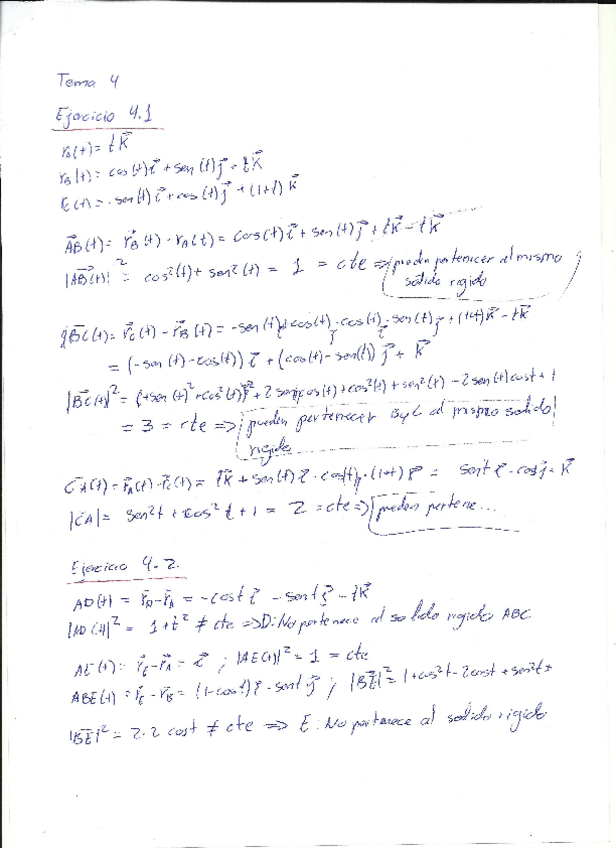 Tema 4
Ejercicio 4.1
r_A(t) = t k⃗
r_B(t) = cos(t) i⃗ + sen(t) j⃗ + t k⃗
r_C(t) = -sen(t) i⃗ + cos(t) j⃗ + (1+t) k⃗
AB⃗(t) = r⃗_B(t) - r_A(t) = cos(t) i⃗ + sen(t) j⃗ + t k⃗ - t k⃗
|AB⃗(t)|² = cos²(t) + sen²(t) = 1 = cte ⇒ pueden pertenecer al mismo
solido rigido
BC⃗(t) = r⃗_C(t) - r⃗_B(t) = -sen(t) i⃗ + cos(t) j⃗ - cos(t) i⃗ - sen(t) j⃗ + (1+t) k⃗ - t k⃗
= (-sen(t) - cos(t)) i⃗ + (cos(t) - sen(t)) j⃗ + k⃗
|BC(t)|² = sen(t)² + cos²(t) + 2 sen(t) cos(t) + cos²(t) + sen²(t) - 2 sen(t) cos t + 1
= 3 = cte ⇒ pueden pertenecer B y C al mismo solido
rigido
CA⃗(t) = r⃗_A(t) - r⃗_C(t) = t k⃗ + sen(t) i⃗ - cos(t) j⃗ - (1+t) k⃗ = sen t i⃗ - cos t j⃗ - k⃗
|CA| = sen² t + cos² t + 1 = 2 = cte ⇒ pueden pertene...
Ejercicio 4.2.
AD(t) = r⃗_D - r⃗_A = -cos t i⃗ - sen t j⃗ - t k⃗
|AD(t)|² = 1 + t² ≠ cte ⇒ D: No pertenece al solido rigido ABC
AE(t) = r⃗_E - r⃗_A = i⃗ ; |AE(t)|² = 1 = cte
BE(t) = r⃗_E - r⃗_B = (1 - cos t) i⃗ - sen t j⃗ ; |BE⃗|² = 1 + cos² t - 2 cos t + sen² t =
|BE⃗|² = 2 - 2 cos t ≠ cte ⇒ E: No pertenece al solido rigido